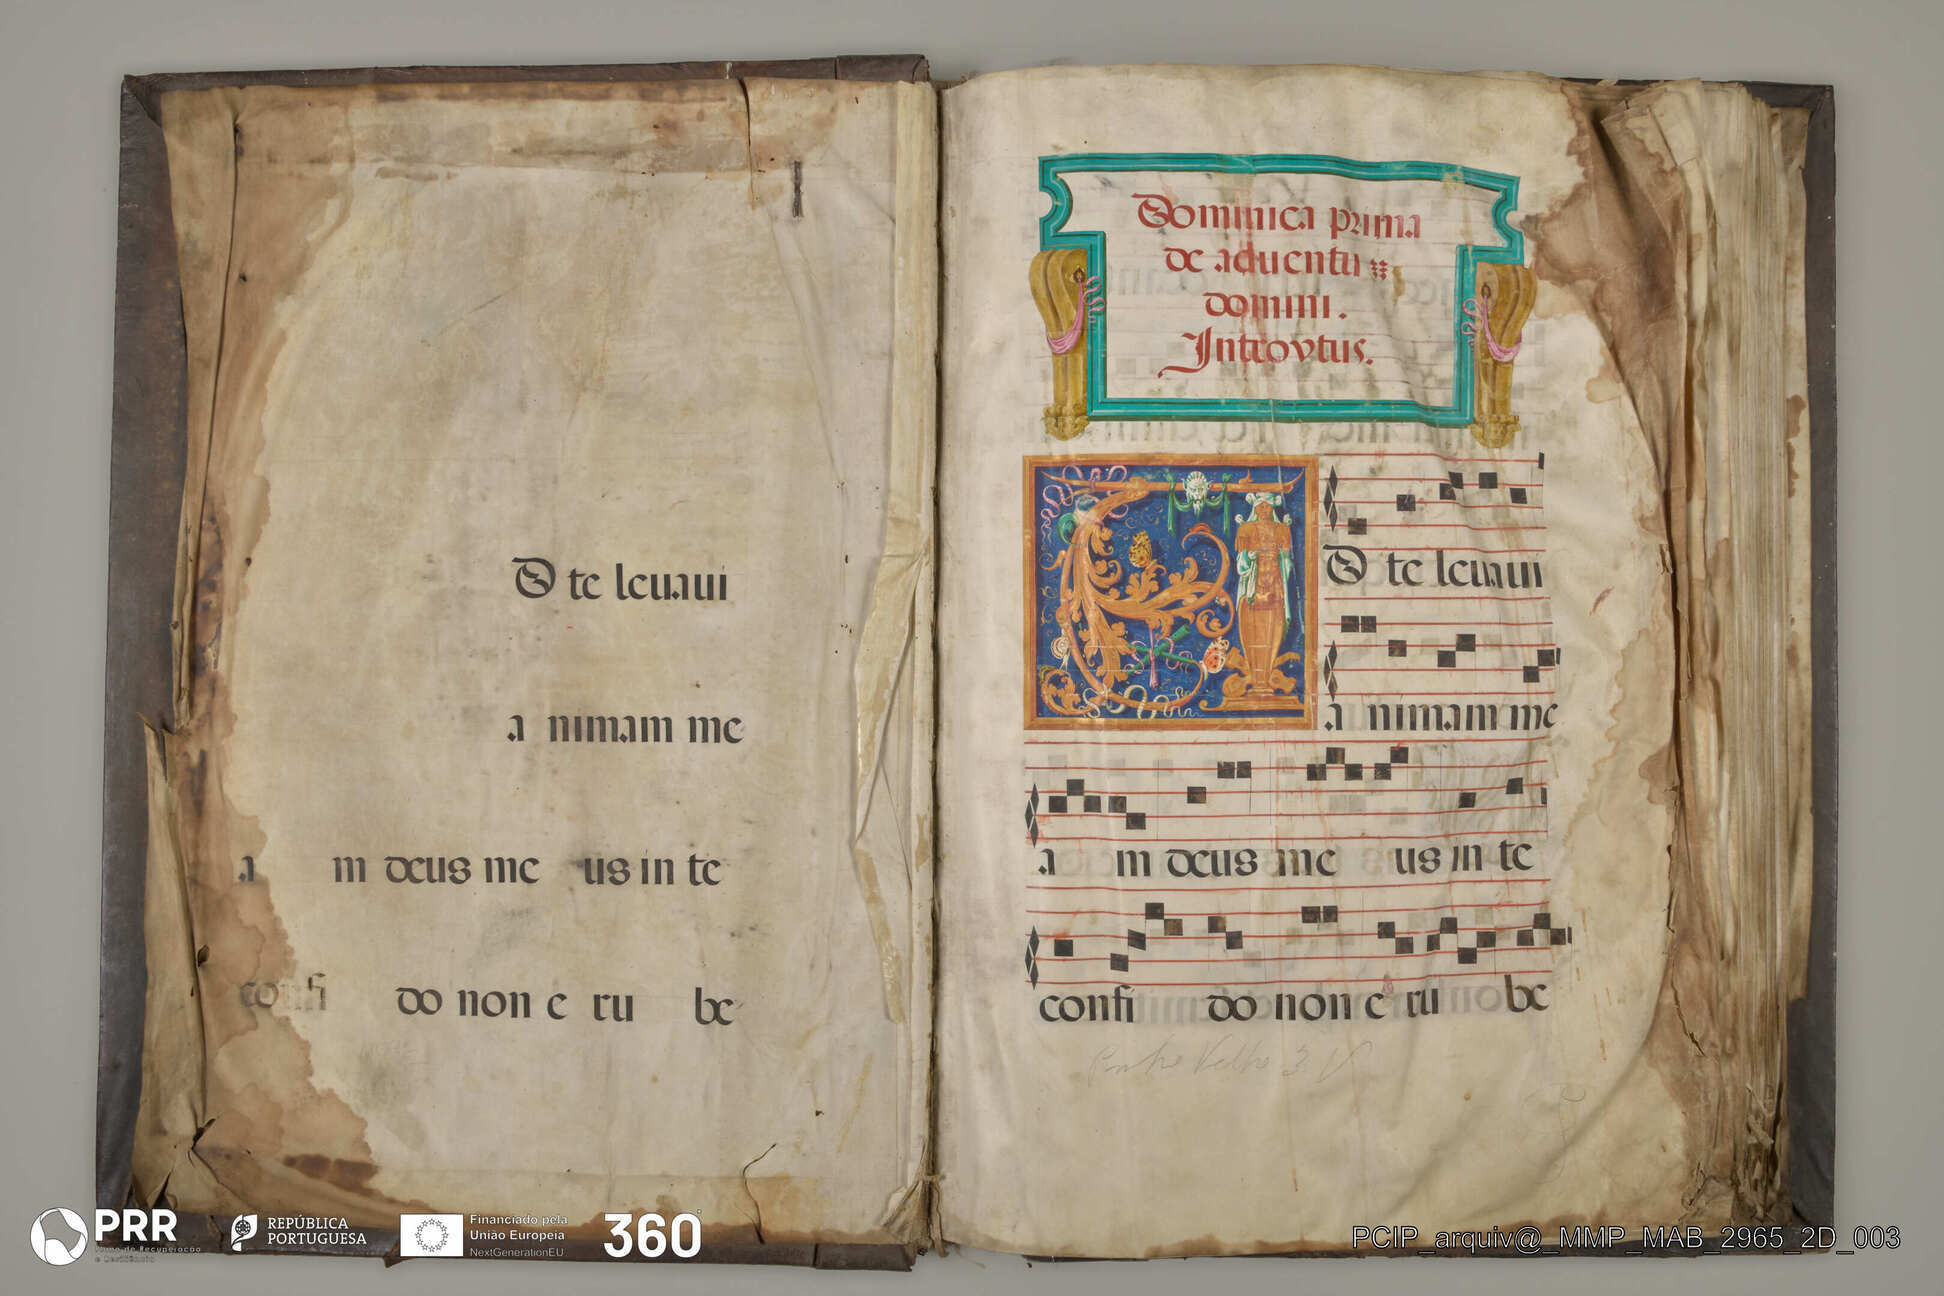 D te leuaui
a nimam me
a m deus me us in te
confi do non e ru be
Dominica prima
de aduentu
domini.
Introytus.
AD te leuaui
a nimam me
a m deus me us in te
confi do non e ru be
Velho 3 V
PRR
REPÚBLICA
PORTUGUESA
Financiado pela
União Europeia
NextGenerationEU
360°
PCIP_arquiv@_MMP_MAB_2965_2D_003